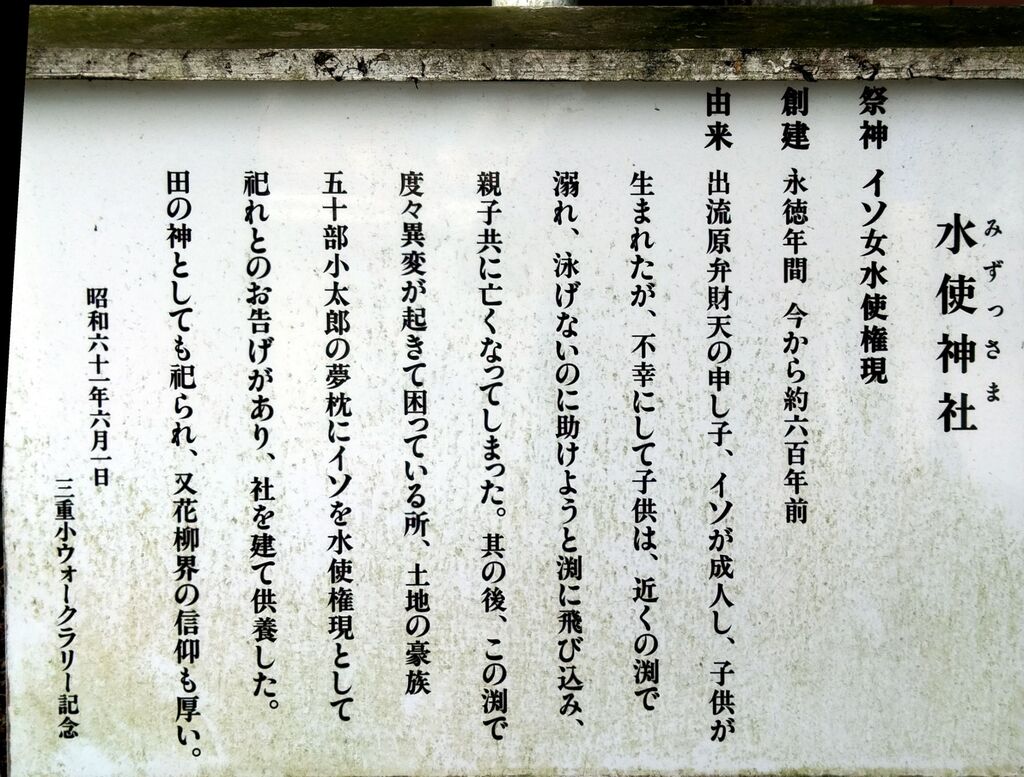 水使神社
みずっさま
祭神 イソ女水使権現
創建 永徳年間 今から約六百年前
由来 出流原弁財天の申し子、イソが成人し、子供が
生まれたが、不幸にして子供は、近くの渕で
溺れ、泳げないのに助けようと渕に飛び込み、
親子共に亡くなってしまった。其の後、この渕で
度々異変が起きて困っている所、土地の豪族
五十部小太郎の夢枕にイソを水使権現として
祀れとのお告げがあり、社を建て供養した。
田の神としても祀られ、又花柳界の信仰も厚い。
昭和六十一年六月一日
三重小ウォークラリー記念